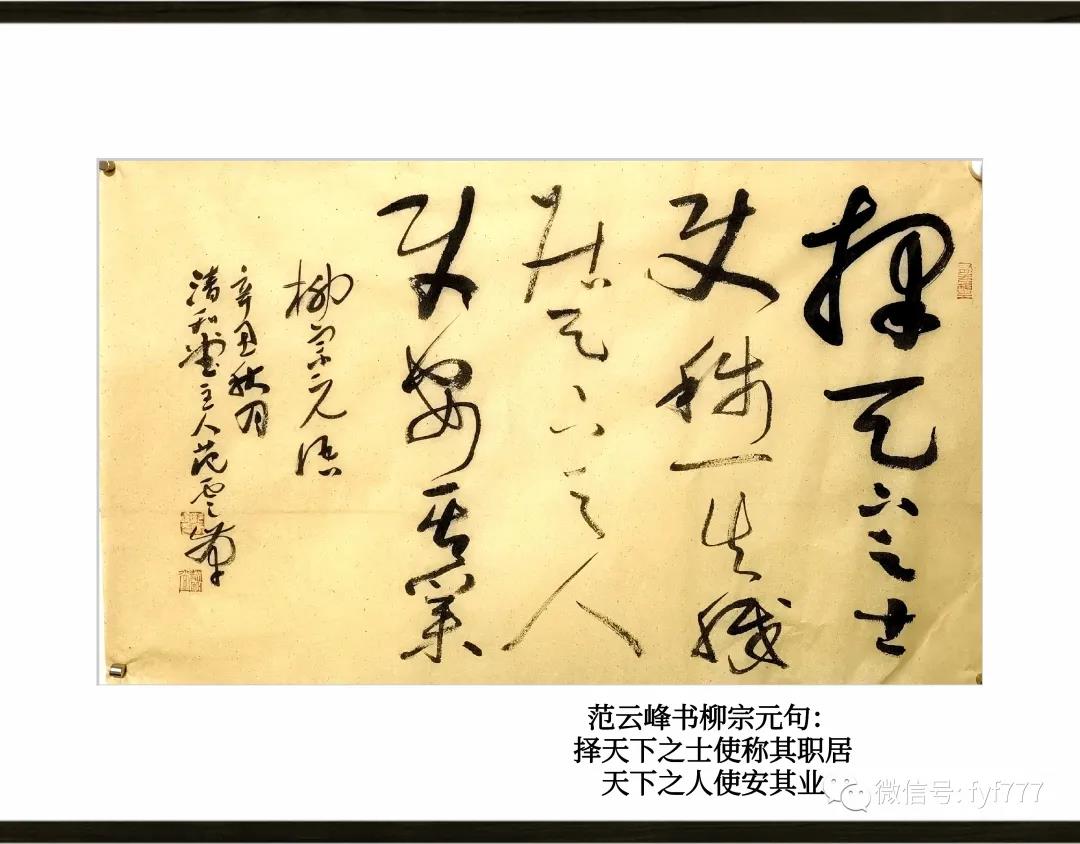 择天下之士
使称其職
居天下之人
使安其業
柳宗元语
辛丑秋月
清和堂主人范云峰
范云峰书柳宗元句：
择天下之士使称其职居
天下之人使安其业
微信号: fyf777